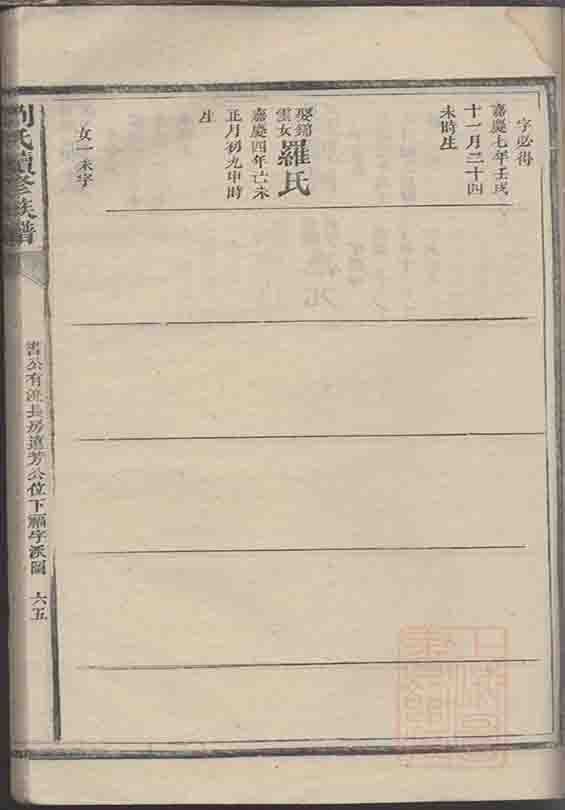 字必得
嘉慶七年壬戌
十一月二十四
未時生
娶錦
雲女羅氏
嘉慶四年己未
正月初九申時
生
女一未字
劉氏續修族譜
公有 長房 芳公位下福字派圖
六五